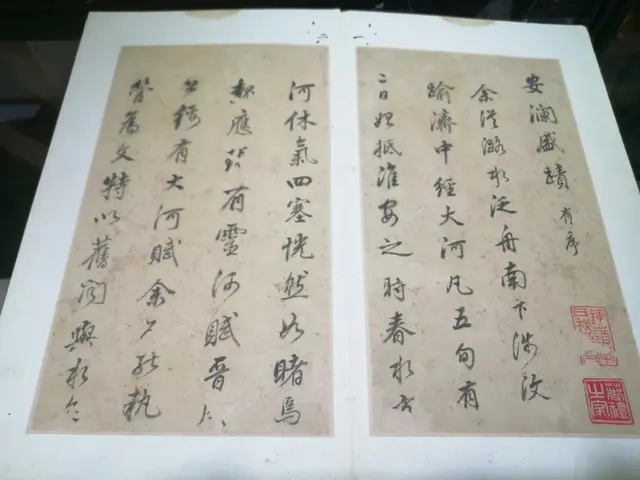 安瀾盛蹟 有序
余從潞水泛舟南下涉汶
踰濟中經大河凡五旬有
二日始抵淮安之時春水
河休氣四塞恍然如睹焉
應瑒有靈河賦晉成
公綏有大河賦余不能執
管為文特以舊聞與